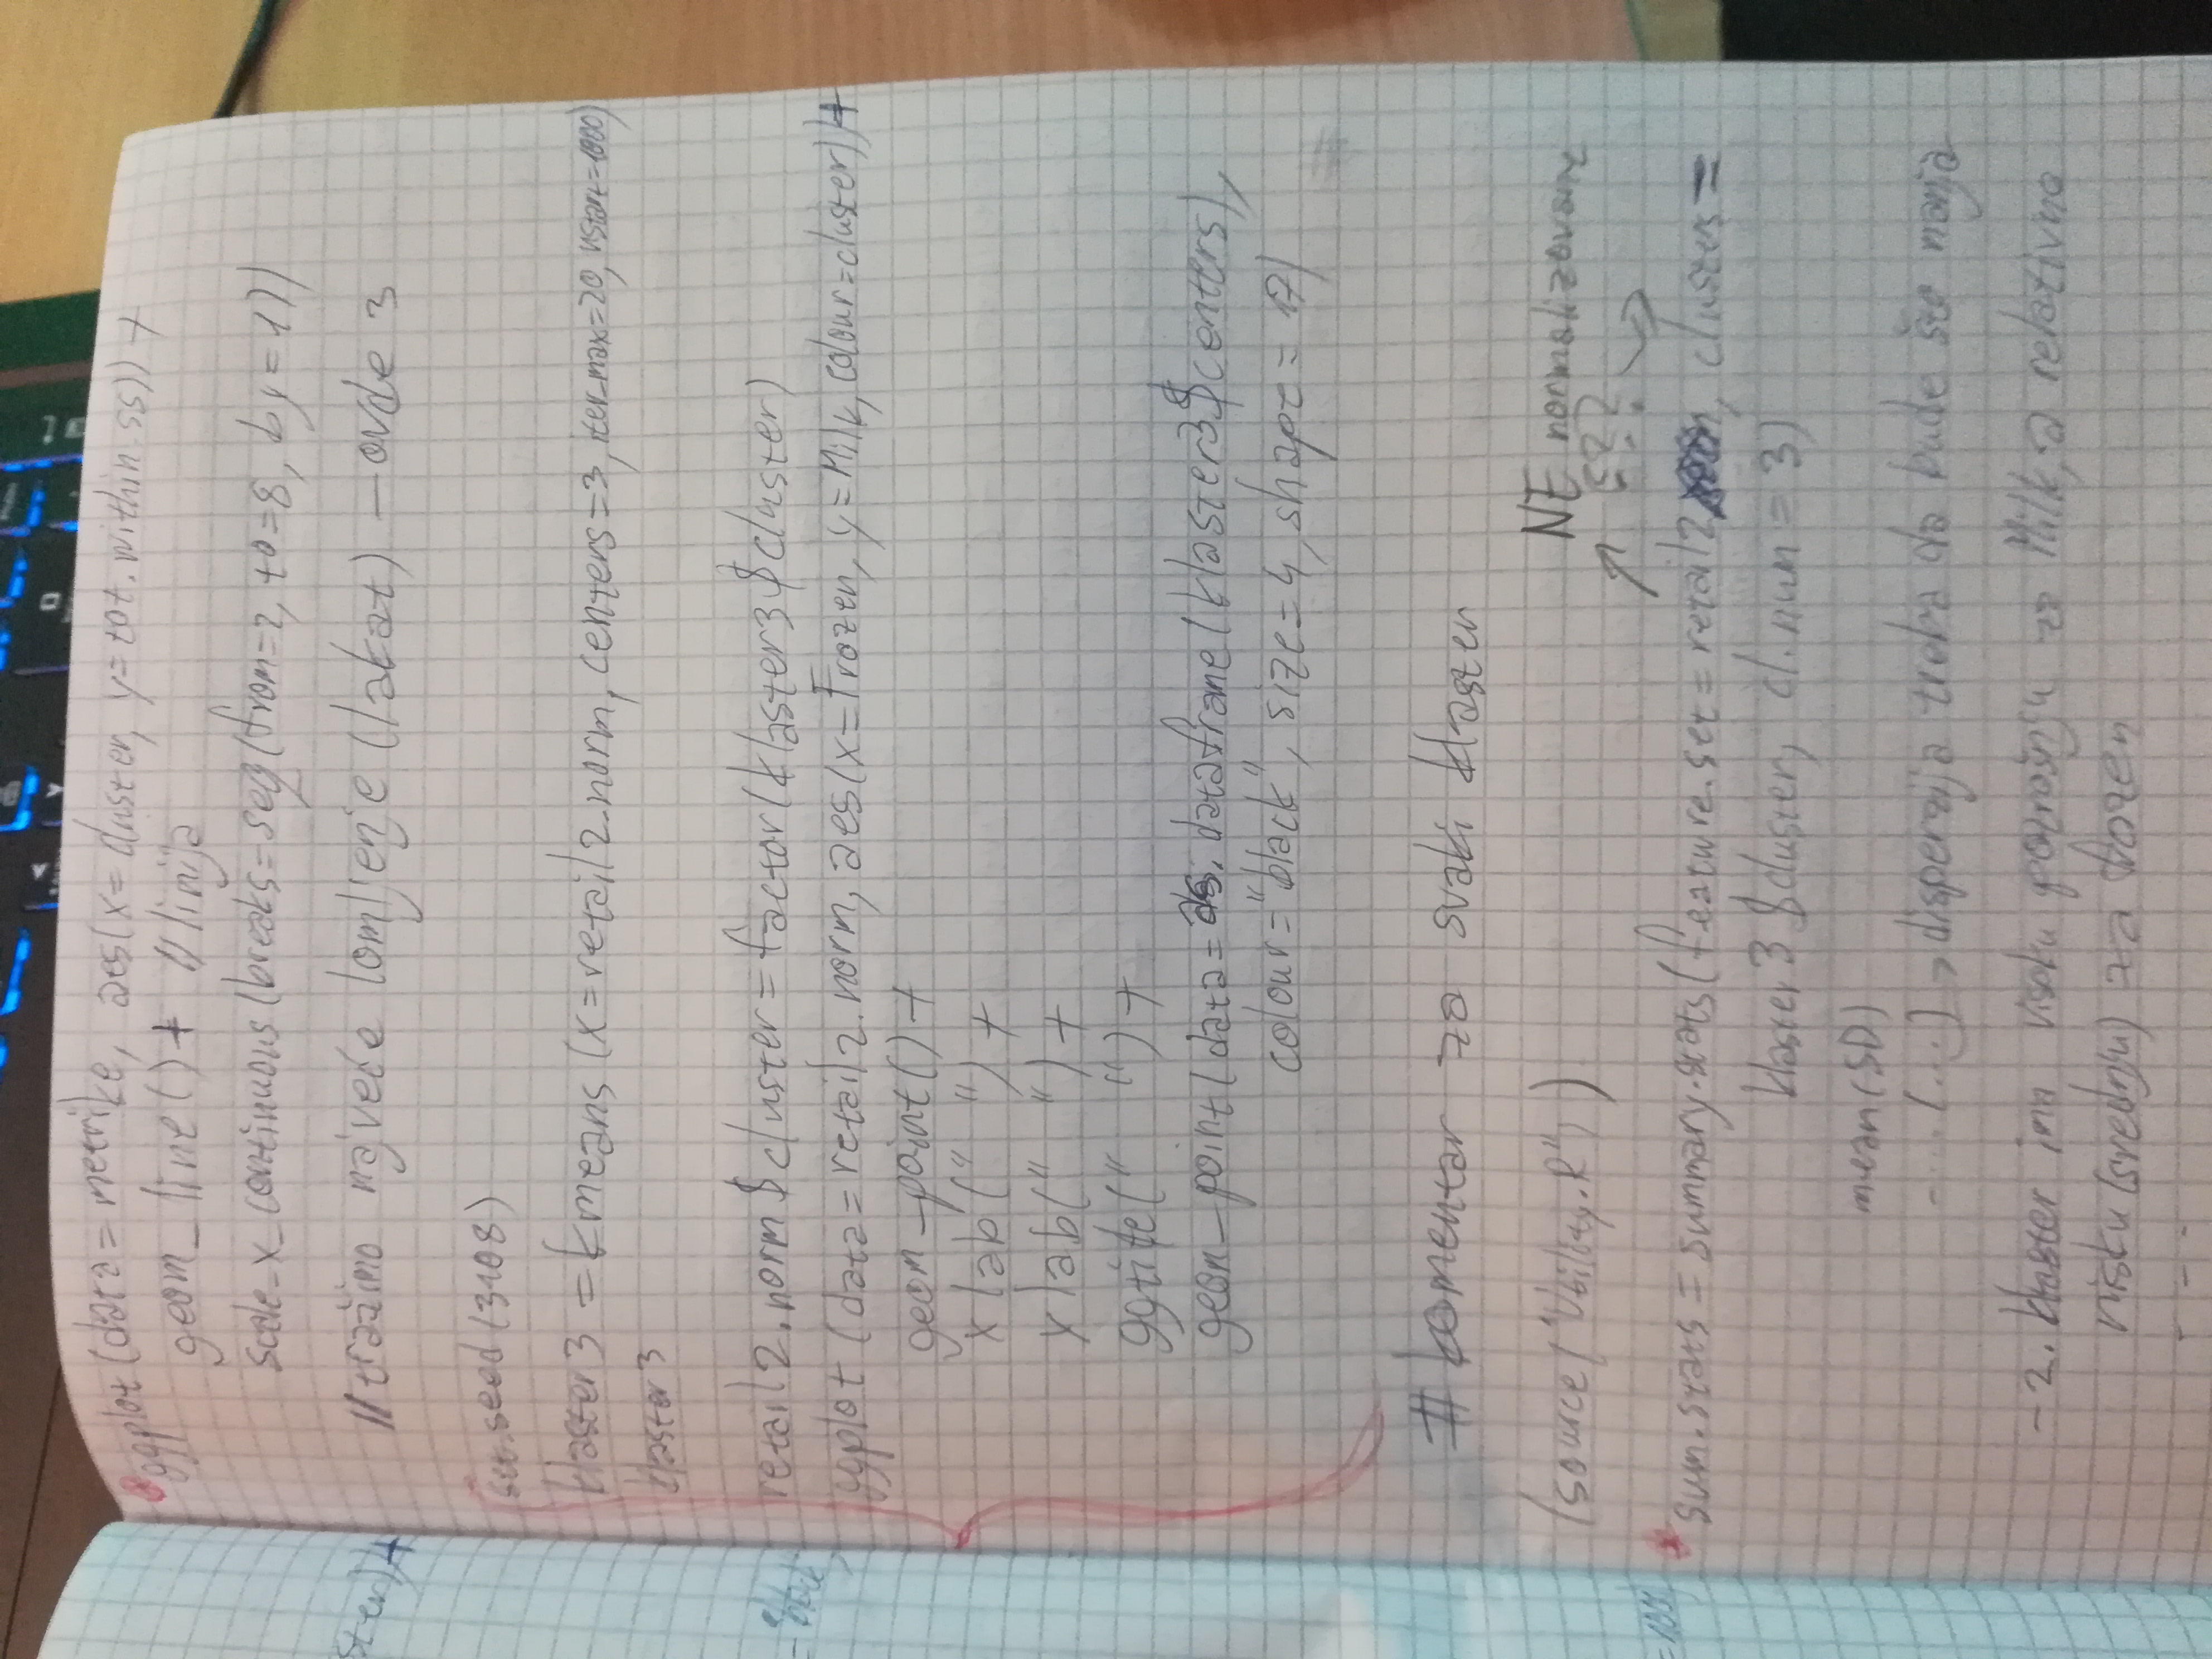 ggplot(data = metrike, aes(x = cluster, y = tot.within.ss)) +
geom_line() + // linija
scale_x_continuous(breaks = seq(from=2, to=8, by=1))
// tražimo najveće lomljenje (lakat) — ovde 3
ster)) +
set.seed(3108)
klaster3 = kmeans(x=retail2.norm, centers=3, iter.max=20, nstart=1000)
klaster3
retail2.norm$cluster = factor(klaster3$cluster)
ggplot(data = retail2.norm, aes(x=Frozen, y=Milk, colour=cluster)) +
geom_point() +
xlab(" ") +
xlab(" ") +
ggtitle(" ") +
geom_point(data = as.dataframe(klaster3$centers),
colour = "black", size = 4, shape = 17)
# komentar za svaki klaster
(source("Utility.R"))
NE normalizovane
???
sum.stats = summary.stats(feature.set = retail2, clusters =
klaster3$cluster, cl.num = 3)
mean(SD)
....(...) → disperzija treba da bude što manja
- 2. klaster ima visoku potrošnju za Milk, a relativno
nisku (srednju) za frozen
- - -